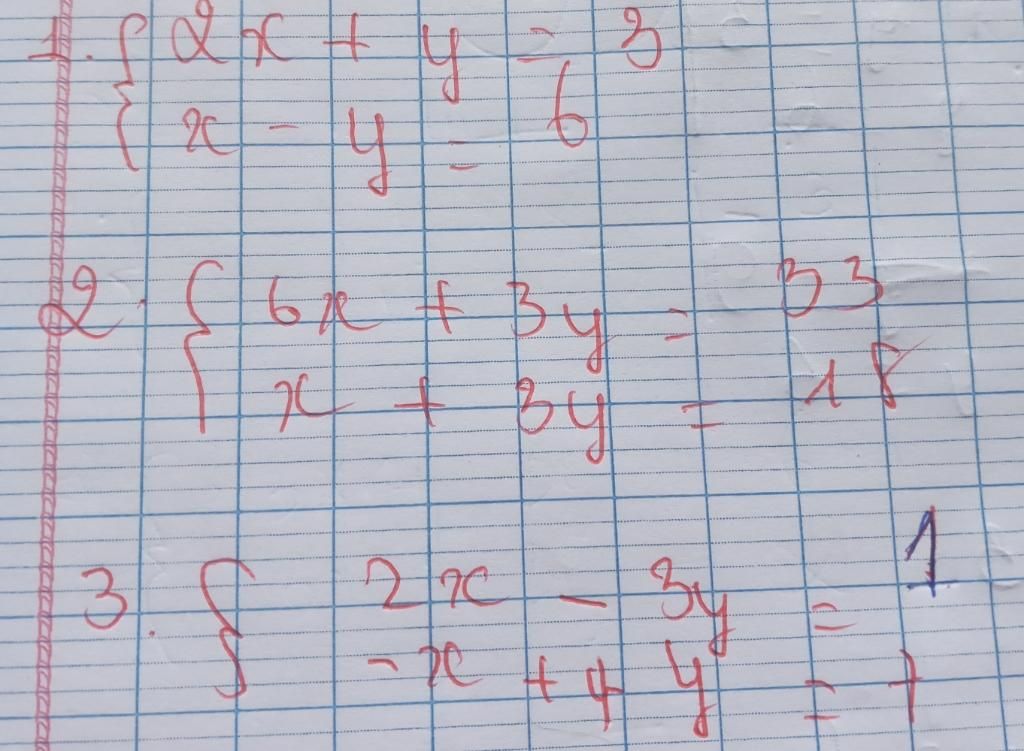 1. { 2x + y = 3
x - y = 6
2. { 6x + 3y = 33
x + 3y = 18
3. { 2x - 3y = 1
-x + 4y = 7